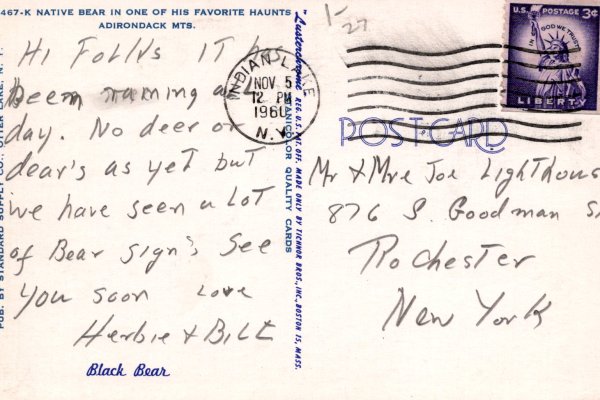 467-K NATIVE BEAR IN ONE OF HIS FAVORITE HAUNTS
ADIRONDACK MTS.
Hi Follks IT has
Been raining all
day. No deer or
dear's as yet but
we have seen a Lot
of Bear Sign's See
You Soon Love
Herbie & Bill
Black Bear
PUB. BY STANDARD SUPPLY CO., OTTER LAKE, N. Y.
"Lusterchrome" REG. U.S. PAT. OFF. MADE ONLY BY TICHNOR BROS., INC., BOSTON 15, MASS.
QUALITY CARDS
1-27
INDIAN LAKE
NOV 5
12 PM
1960
N.Y.
U.S. POSTAGE 3¢
IN GOD WE TRUST
LIBERTY
POST CARD
Mr & Mrs Joe Lighthouse
876 S. Goodman S
Rochester
New York